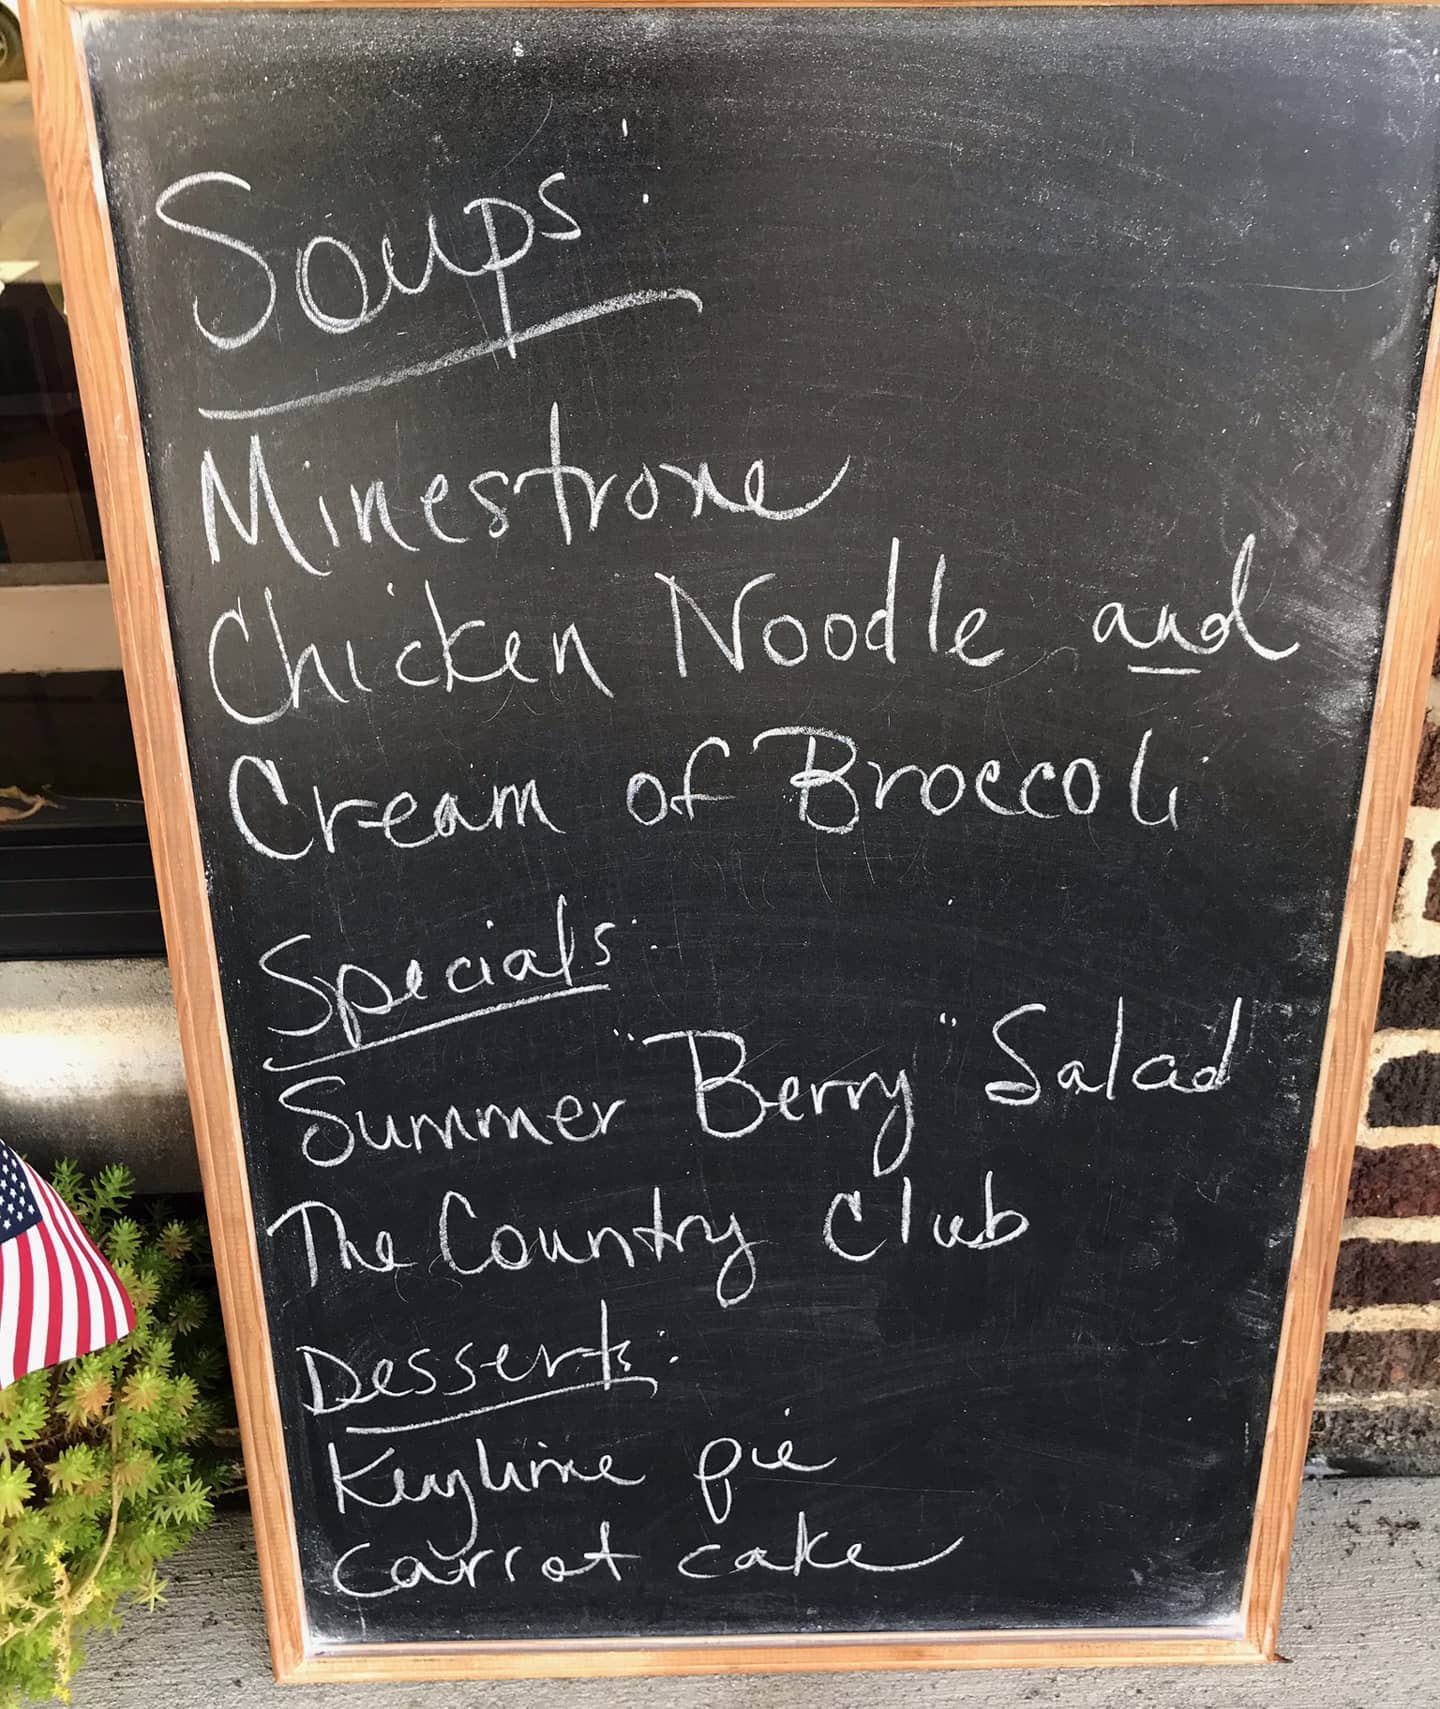 Soups:
Minestrone
Chicken Noodle and
Cream of Broccoli
Specials:
Summer "Berry" Salad
The Country Club
Desserts:
Keylime pie
carrot cake